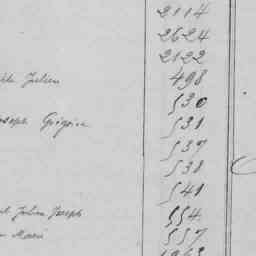 2114
2624
2122
Julien 498
530
Joseph Grégoire 531
537
538
541
Julien Joseph 554
Marie 557